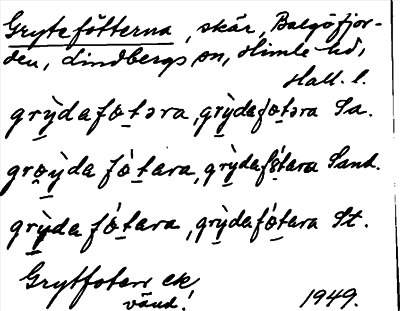 Grytefötterna, skär, Balgöfjor-
den, Lindbergs sn, Himle hd,
Hall. l.
grỳdafo̲təra, grỳdafo̲təra Sa.
grỳda fó̲tara, grỳdafó̲tara Sand.
grỳda fó̲tara, grỳdafó̲tara St.
Grytfoten ek,
vänd!
1949.